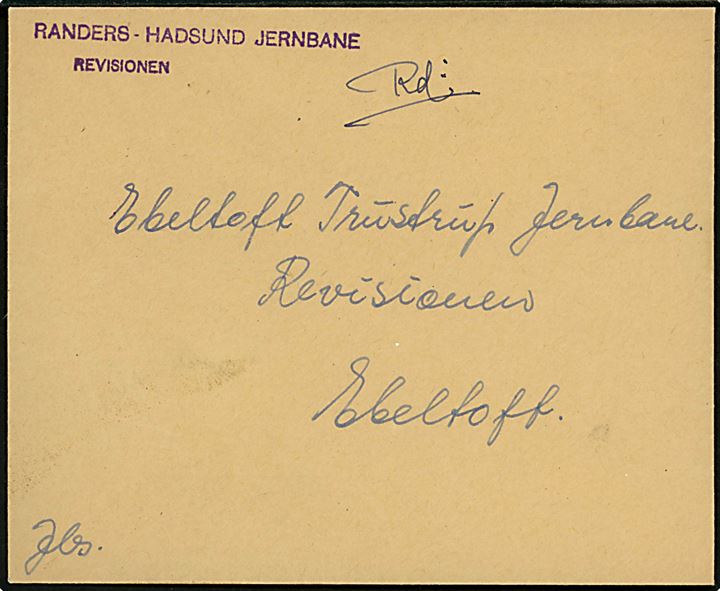 RANDERS - HADSUND JERNBANE
REVISIONEN
Rd:
Ebeltoft Trustrup Jernbane.
Revisionen
Ebeltoft.
Jbs.